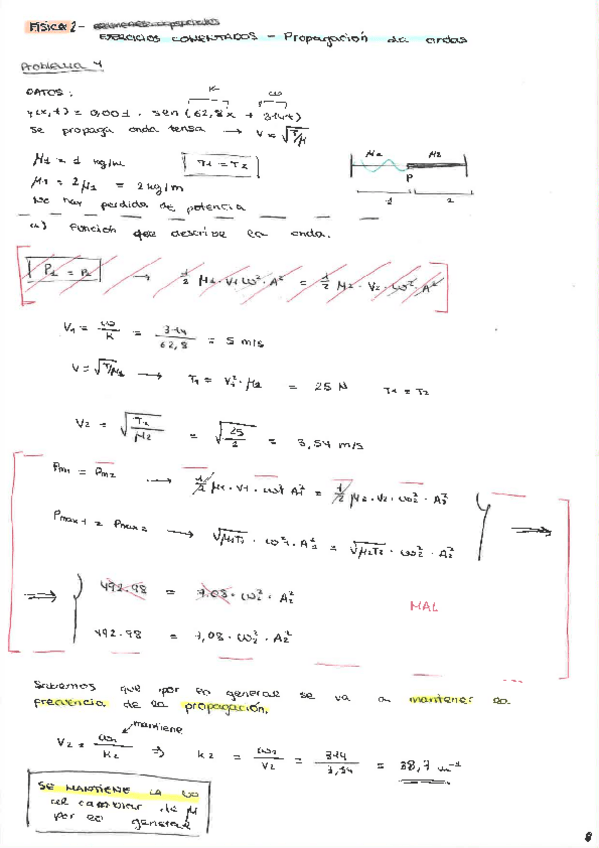 FÍSICA 2 -
EJERCICIOS COMENTADOS - Propagación de ondas
Problema 4
DATOS:
K ω
y(x,t) = 0,001 · sen (62,8x + 314t)
se propaga onda tensa → V = √T/μ
μ1 = 1 kg/m T1 = T2
μ2 = 2μ1 = 2 kg/m
No hay perdida de potencia
μ1 μ2
P
1 2
a) Función que describe la onda.
P1 = P2 → 1/2 μ1 · V1 ω² · A² = 1/2 μ2 · V2 · ω² · A²
V1 = ω/K = 314/62,8 = 5 m/s
V = √T/μ1 → T1 = V1² · μ1 = 25 N T1 = T2
V2 = √T2/μ2 = √25/2 = 3,54 m/s
Pm1 = Pm2 → 1/2 μ1 · V1 · ω1² A1² = 1/2 μ2 · V2 · ω2² · A2²
Pmax1 = Pmax2 → √μ1T1 · ω1² · A1² = √μ2T2 · ω2² · A2²
492.98 = 7.08 · ω2² · A2²
MAL
492.98 = 7,08 · ω2² · A2²
Sabemos que por lo general se va a mantener la
frecuencia de la propagación.
mantiene
V2 = ω2/K2 ⇒ K2 = ω2/V2 = 314/3,54 = 88,7 m⁻¹
SE MANTIENE LA ω
al cambiar de μ
por lo general
8